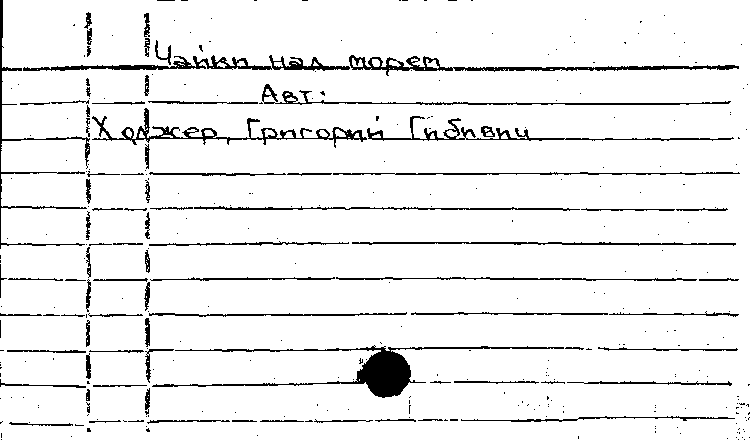 Чайки над морем
Авт:
Ходжер, Григорий Гибивич